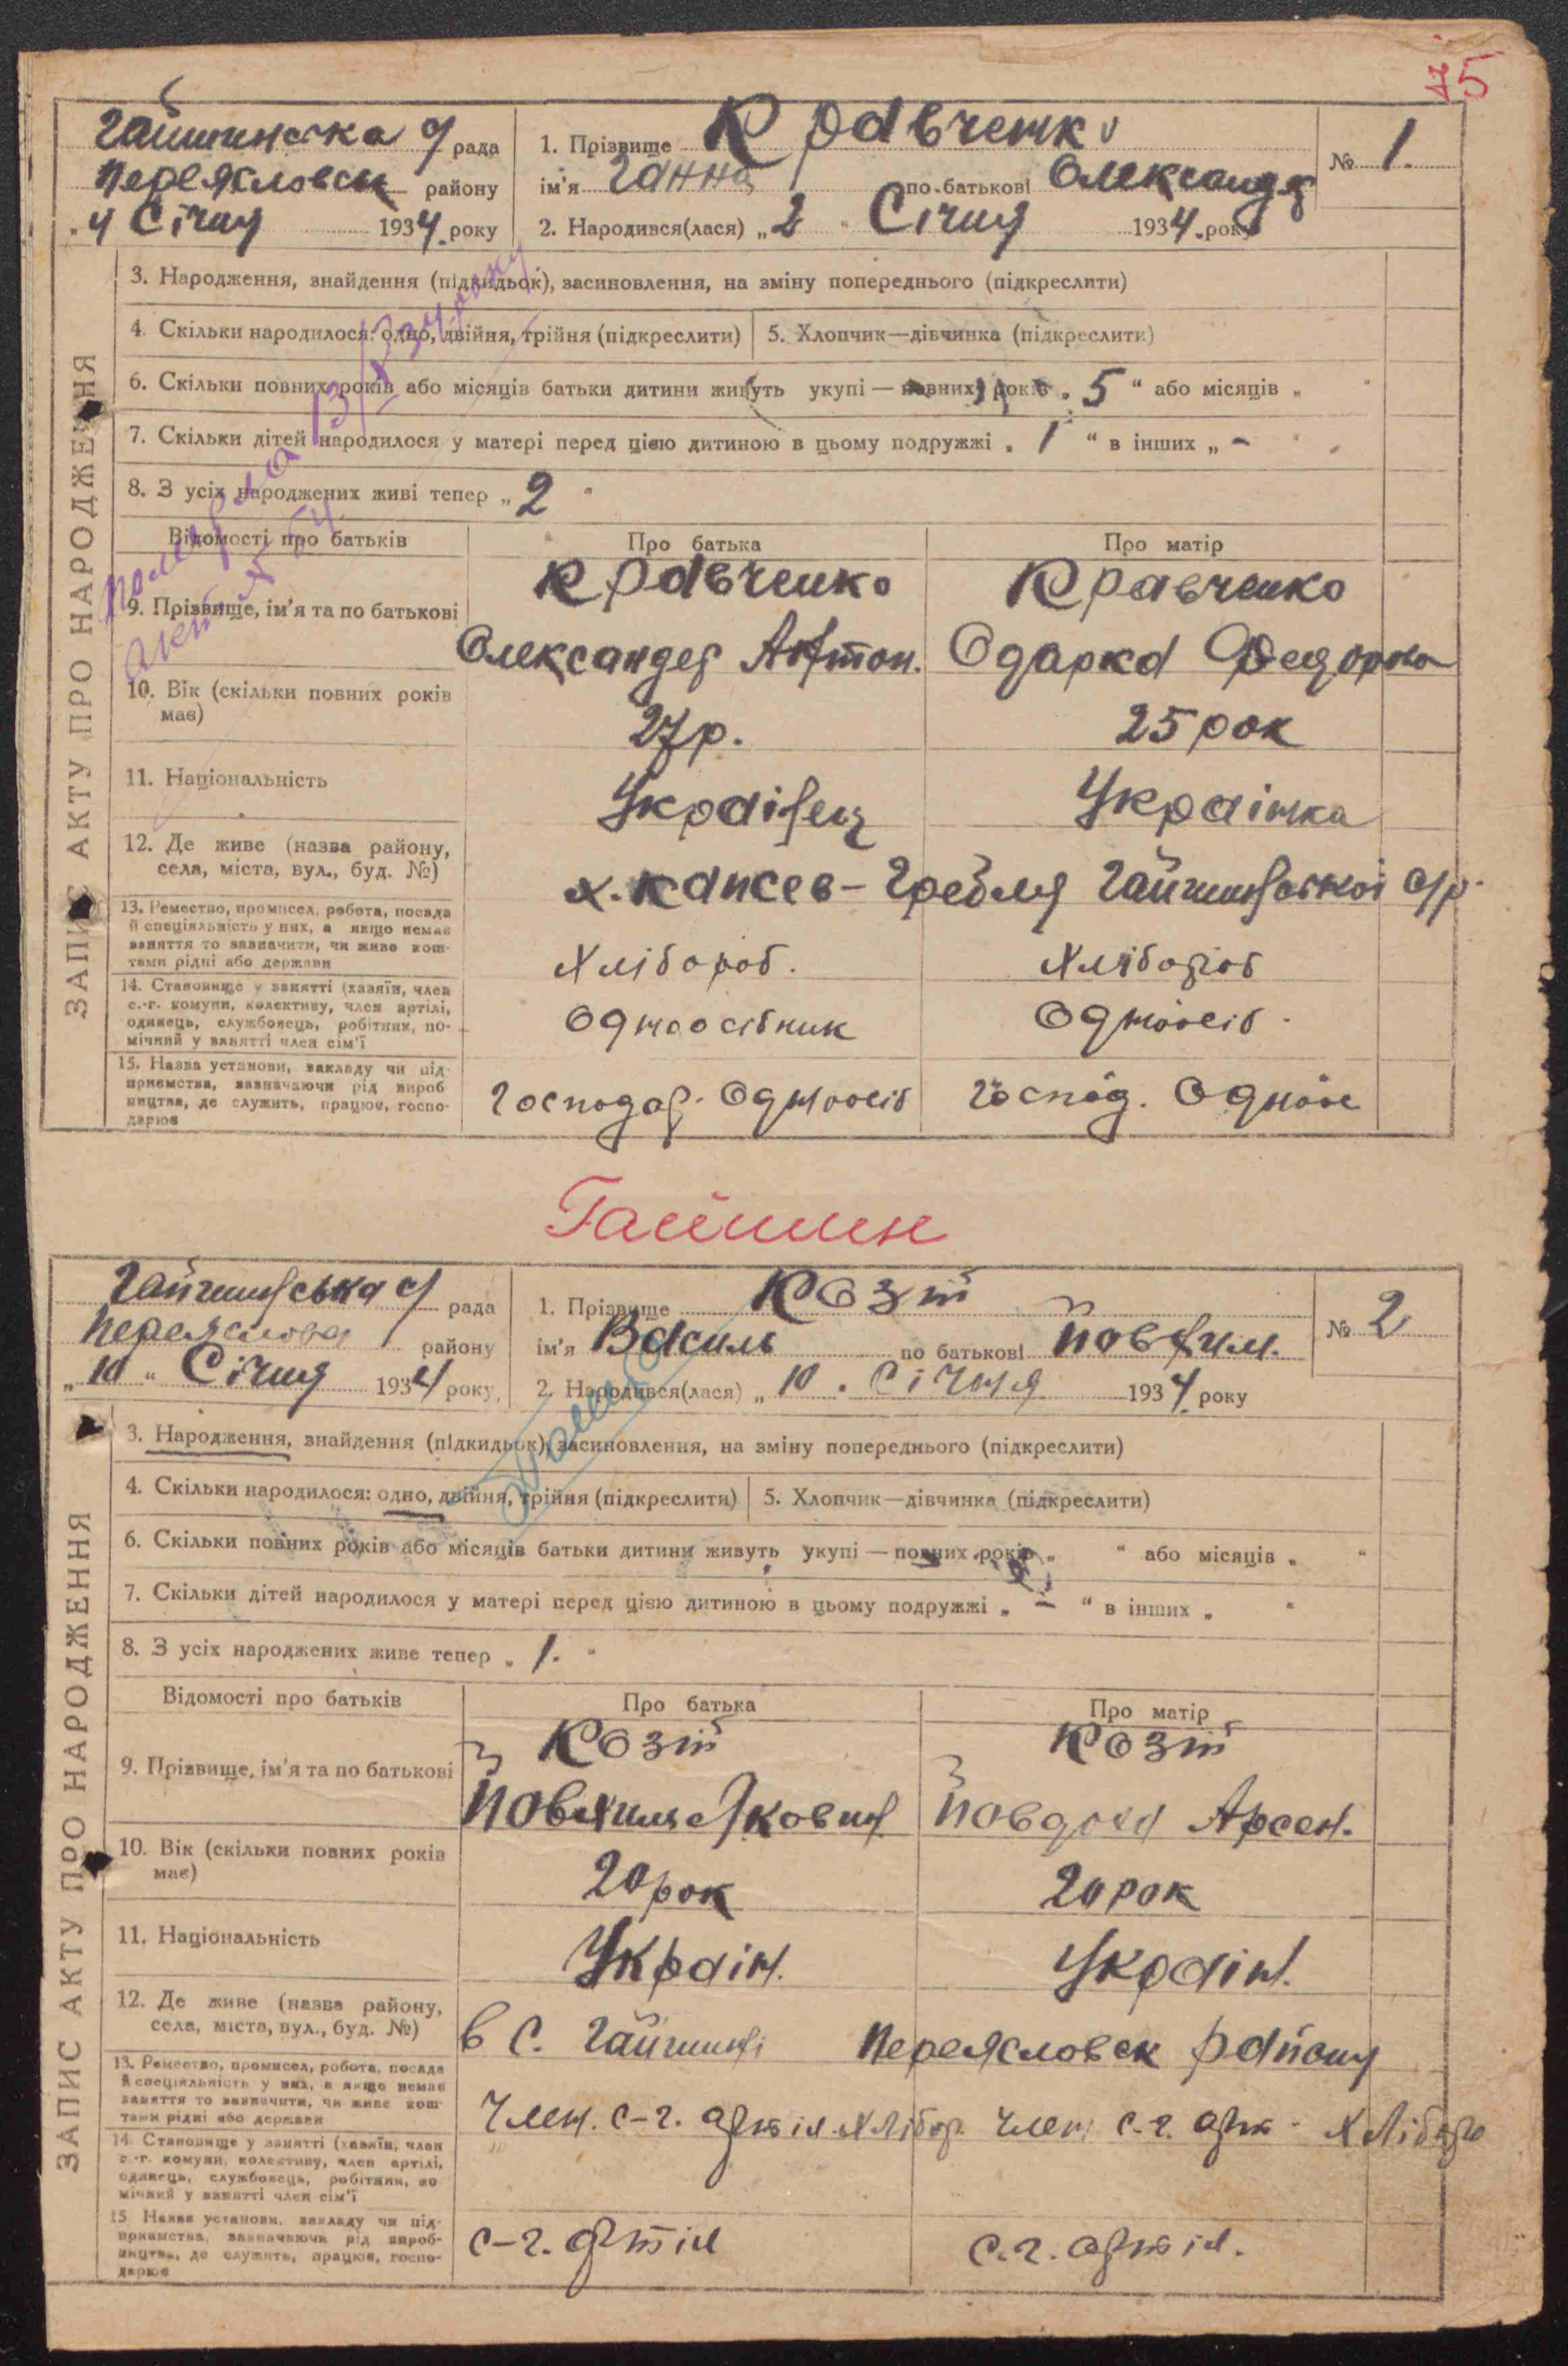 75
Гайшинська с/рада
Переясловськ району
"4 Січня 1934 року
1. Прізвище Кравченко
ім'я Ганна по батькові Олександр
2. Народився(лася) „2" Січня 1934 року
№ 1.
ЗАПИС АКТУ ПРО НАРОДЖЕННЯ
3. Народження, знайдення (підкидьок), засиновлення, на зміну попереднього (підкреслити)
4. Скільки народилося: одно, двійня, трійня (підкреслити)
5. Хлопчик—дівчинка (підкреслити)
6. Скільки повних років або місяців батьки дитини живуть укупі — повних років „5" або місяців „ "
7. Скільки дітей народилося у матері перед цією дитиною в цьому подружжі „1" в інших „-"
8. З усіх народжених живі тепер „2"
Померла
акт №
Відомості про батьків
Про батька
Про матір
9. Прізвище, ім'я та по батькові
Кравченко
Олександер Антон.
Кравченко
Одарка Федоровна
10. Вік (скільки повних років має)
27р.
25 рок
11. Національність
Українец
Українка
12. Де живе (назва району, села, міста, вул., буд. №)
х. Кансев-Гребля Гайшинської с/р.
13. Ремество, промисел, робота, посада й спеціяльність у них, а якщо немає заняття то зазначити, чи живе коштами рідні або держави
Хлібороб.
Хлібороб
14. Становище у занятті (хазяїн, член с.-г. комуни, колективу, член артілі, одинець, службовець, робітник, помічний у занятті член сім'ї
Одноосібник
Одноосіб.
15. Назва установи, закладу чи підприємства, зазначаючи рід виробництва, де служить, працює, господарює
Господар. Одноосіб
Господ. Одноос
Гайшин
Гайшинська с/рада
Переяслова району
„10" Січня 1934 року
1. Прізвище Козій
ім'я Василь по батькові Йовхим.
2. Народився(лася) „10. Січня 1934 року
№ 2
ЗАПИС АКТУ ПРО НАРОДЖЕННЯ
3. Народження, знайдення (підкидьок), засиновлення, на зміну попереднього (підкреслити)
4. Скільки народилося: одно, двійня, трійня (підкреслити)
5. Хлопчик—дівчинка (підкреслити)
6. Скільки повних років або місяців батьки дитини живуть укупі — повних років „ " або місяців „ "
7. Скільки дітей народилося у матері перед цією дитиною в цьому подружжі „-" в інших „ "
8. З усіх народжених живе тепер „1."
Відомості про батьків
Про батька
Про матір
9. Прізвище, ім'я та по батькові
Козій
Йовхим Яковив
Козій
Йовдоха Арсен.
10. Вік (скільки повних років має)
20 рок
20 рок
11. Національність
Україн.
Україн.
12. Де живе (назва району, села, міста, вул., буд. №)
в с. Гайшині Переясловск району
13. Ремество, промисел, робота, посада й спеціяльність у них, а якщо немає заняття то зазначити, чи живе коштами рідні або держави
Член. с-г. артіл. Хлібор.
член с.г. арт. Хлібор
14. Становище у занятті (хазяїн, член с.-г. комуни, колективу, член артілі, одинець, службовець, робітник, помічний у занятті член сім'ї
15. Назва установи, закладу чи підприємства, зазначаючи рід виробництва, де служить, працює, господарює
с-г. артіл
с.г. артіл.